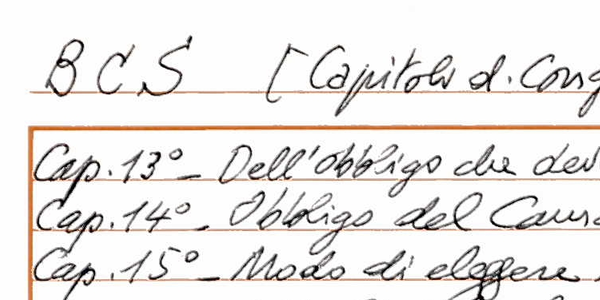 BCS [Capitoli d. Cong
Cap. 13° - Dell'obbligo che dev
Cap. 14° - Obbligo del Caus
Cap. 15° - Modo di eleggere